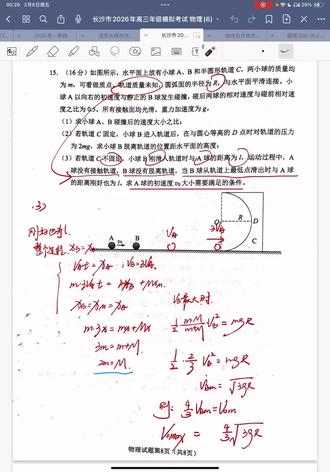 00:26 2月6日周五
29%
长沙市2026年高三年级模拟考试 物理 (6)
15.(16分)如图所示,水平面上放有小球A、B和半圆形轨道C,两小球的质量均
为m,可看做质点,轨道质量未知,圆弧面的半径为R,与水平面平滑连接。小
球A以向右的初速度与静止的B球发生碰撞,碰后两球的相对速度与碰前相对速
度之比为0.5,所有接触面均光滑,重力加速度为g。
(1)求小球A、B碰撞后的速度大小之比;
(2)若轨道C固定,小球B进入轨道后,在与圆心等高的D点时对轨道的压力
为2mg,求小球B脱离轨道的位置距水平面的高度;
(3)若轨道C不固定,小球B刚滑入轨道时与A球的距离为l,运动过程中,A
球没有接触轨道,B球没有脱离轨道,当B球从轨道上最低点滑出时与A球
的距离刚好也为l,求A球的初速度v₀大小需要满足的条件。
(3)
A
v₀
B
vA
3vA
O
R
D
C
m·3x = mx + Mx
3m = m+M.
2m = M.
vB最大时.
½ mM/(m+M) vB² = mgR
½ · 2/3 vB² = mgR
vBm = √3gR
则: 4/3 vBm = v₀m
v₀max = 4/3 √3gR
物理试题第8页(共8页)